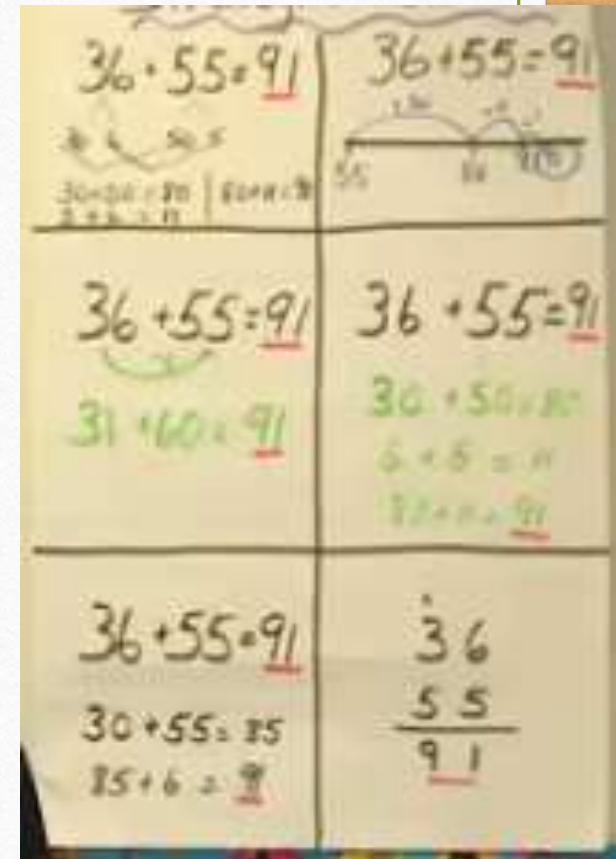 36+55=91
30 6 50 5
30+50=80 | 80+11=91
5+6=11
36+55=91
55
36+55=91
31+60=91
36+55=91
30+50=80
6+5=11
80+11=91
36+55=91
30+55=85
85+6=91
36
55
91